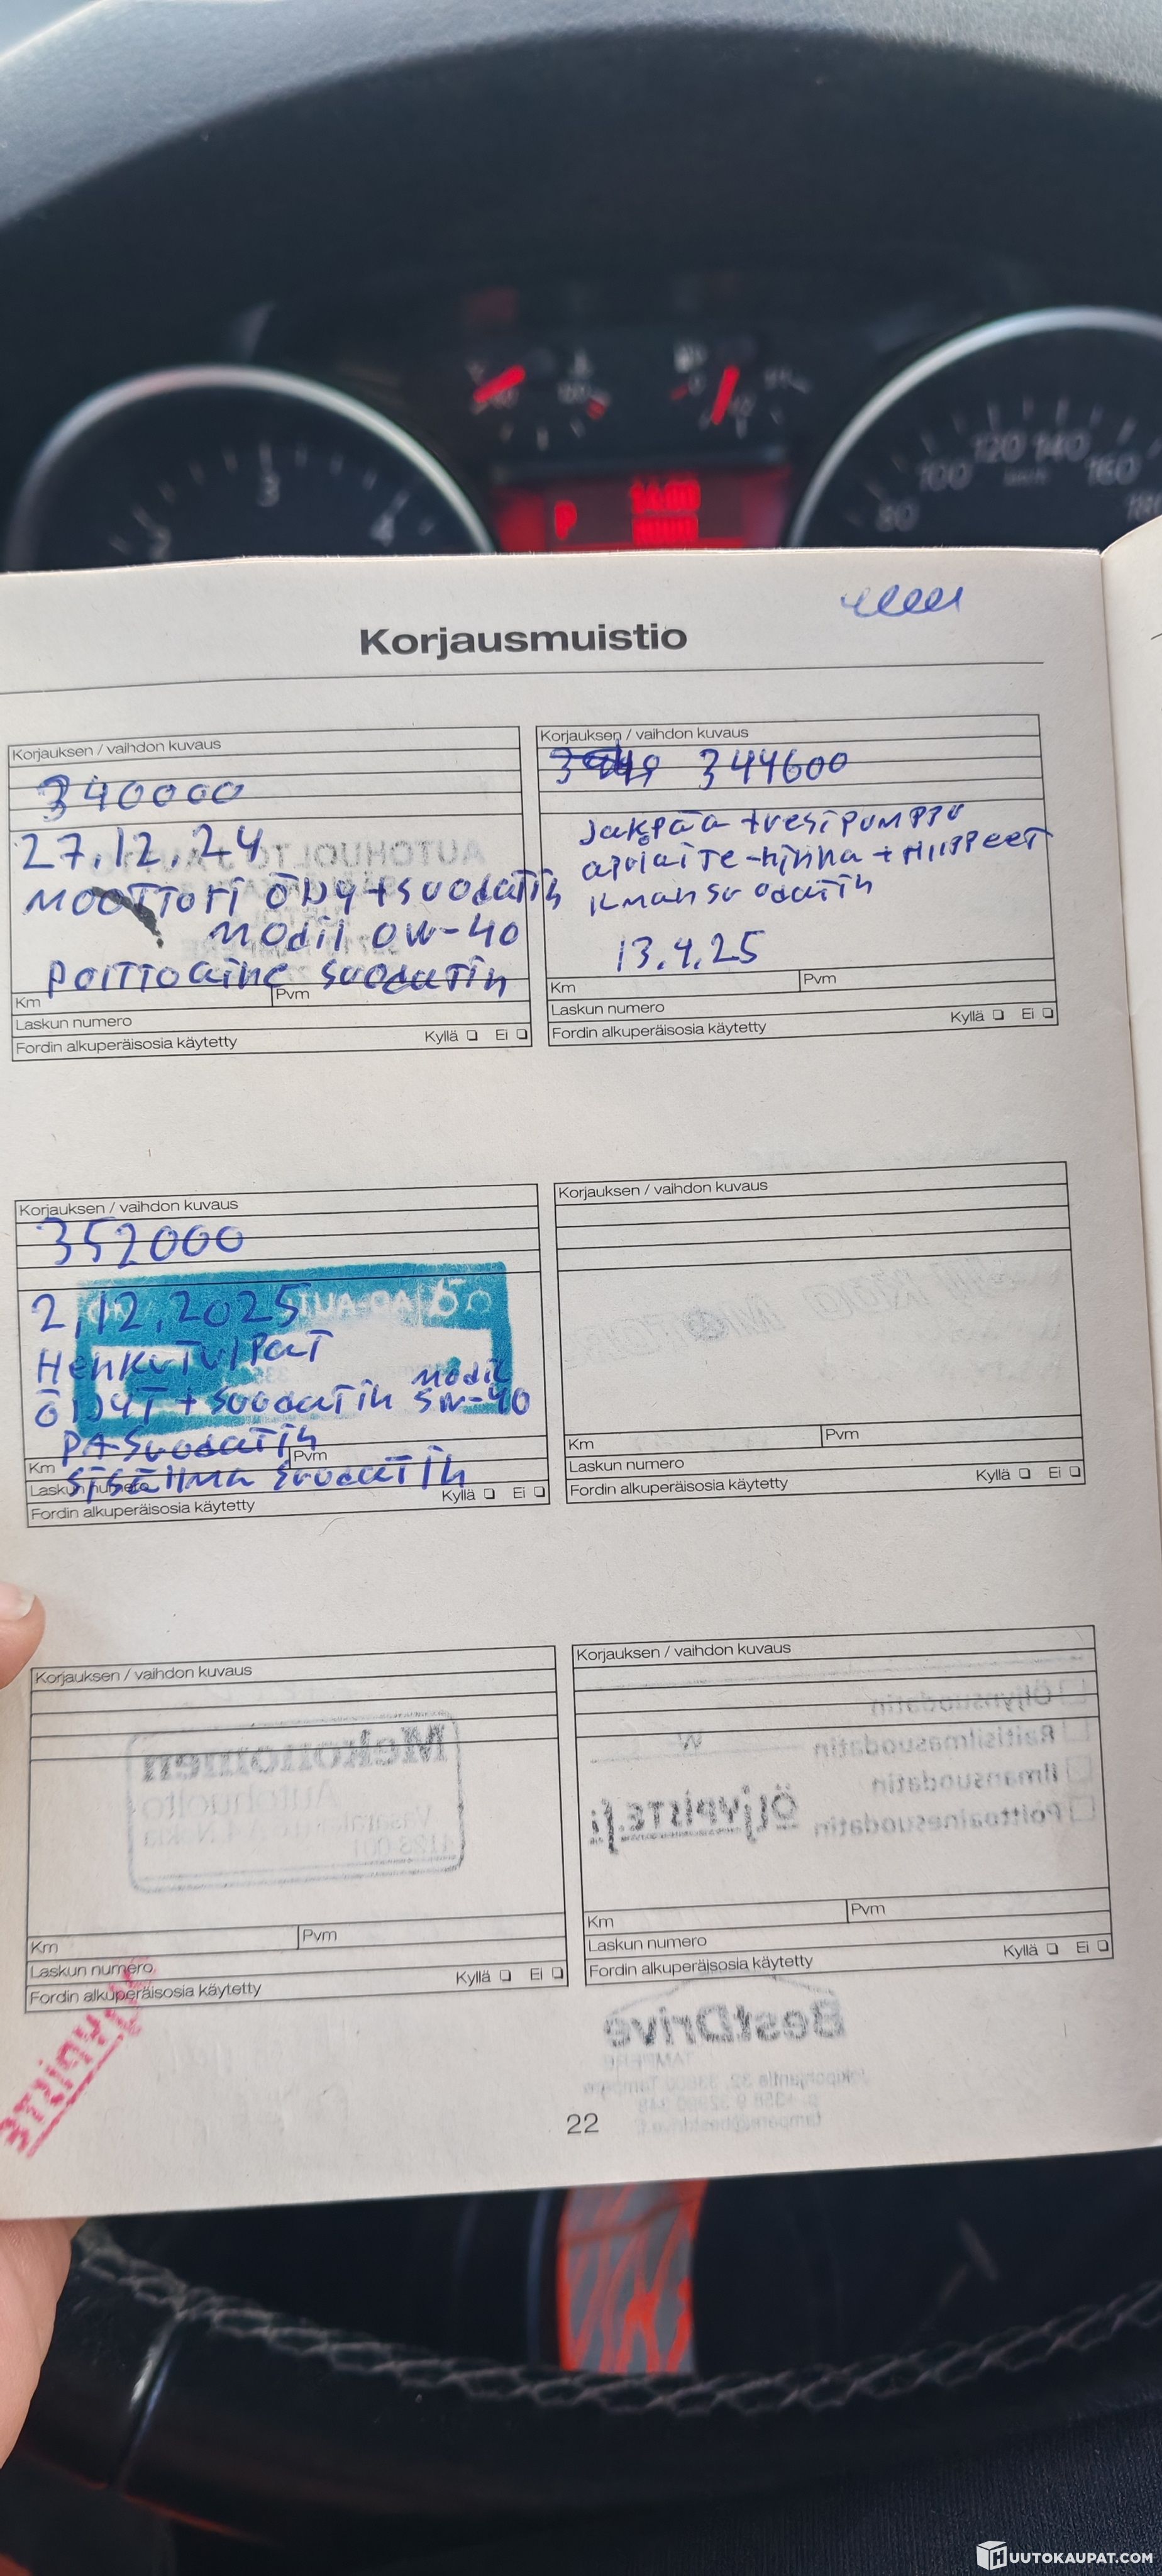 3
2
4
P
14:00
120 140
100
160
80
180
Korjausmuistio
Korjauksen / vaihdon kuvaus
340000
27.12.24
MOOTTORI ÖLJY + SUODATIN
MOBIL 0W-40
POLTTOAINE SUODATIN
Km
Pvm
Laskun numero
Fordin alkuperäisosia käytetty
Kyllä
Ei
Korjauksen / vaihdon kuvaus
344600
Jakopää + vesipumppu
apulaite-hihna +
ilmansuodatin
13.4.25
Km
Pvm
Laskun numero
Fordin alkuperäisosia käytetty
Kyllä
Ei
Korjauksen / vaihdon kuvaus
352000
2.12.2025
ÖLJYT + SUODATIN 5W-40
PA SUODATIN
SISÄILMA SUODATIN
Km
Pvm
Laskun numero
Fordin alkuperäisosia käytetty
Kyllä
Ei
Korjauksen / vaihdon kuvaus
Km
Pvm
Laskun numero
Fordin alkuperäisosia käytetty
Kyllä
Ei
Korjauksen / vaihdon kuvaus
Mekonomen
Autohuolto
Km
Pvm
Laskun numero
Fordin alkuperäisosia käytetty
Kyllä
Ei
Korjauksen / vaihdon kuvaus
Öljynsuodatin
Raitisilmasuodatin
Ilmansuodatin
Polttoainesuodatin
ÖLJYPISTE.fi
Km
Pvm
Laskun numero
Fordin alkuperäisosia käytetty
Kyllä
Ei
BestDrive
TAMPERE
22
HUUTOKAUPAT.COM